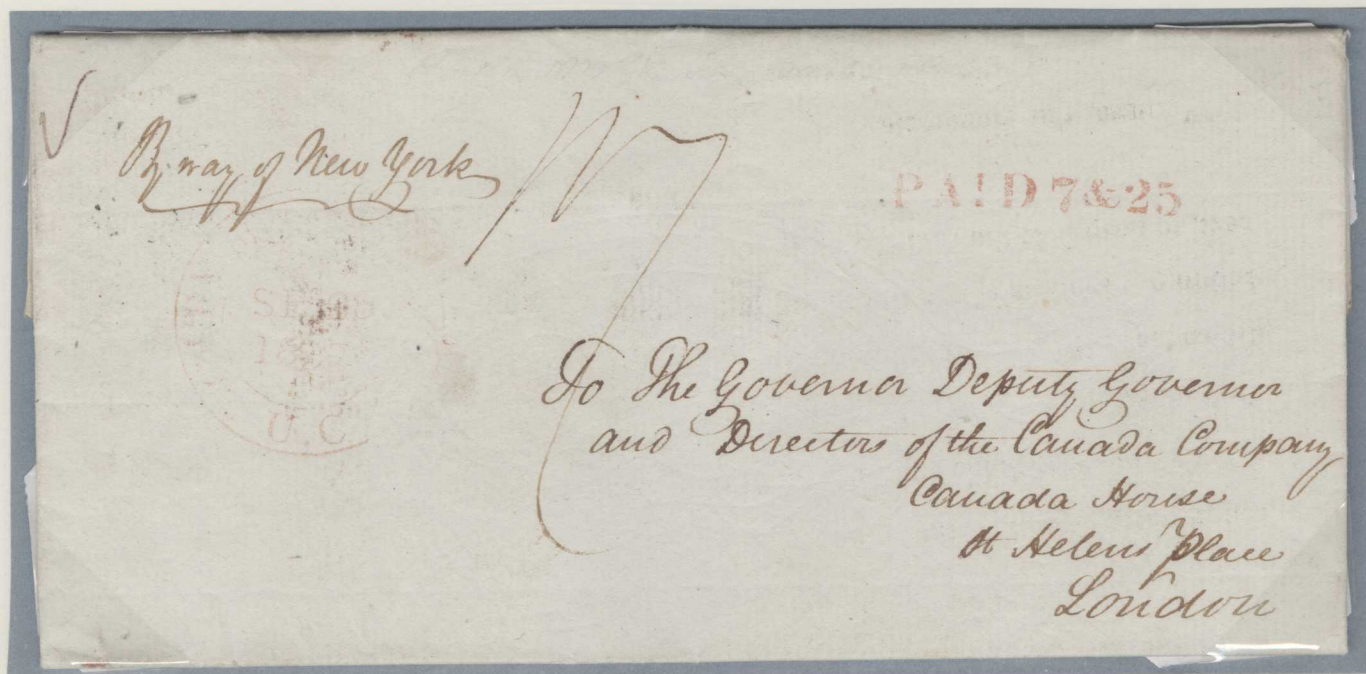 By way of New York
PAID 7&25
SEP
U.C.
To The Governor Deputy Governor
and Directors of the Canada Company
Canada House
St Helens Place
London